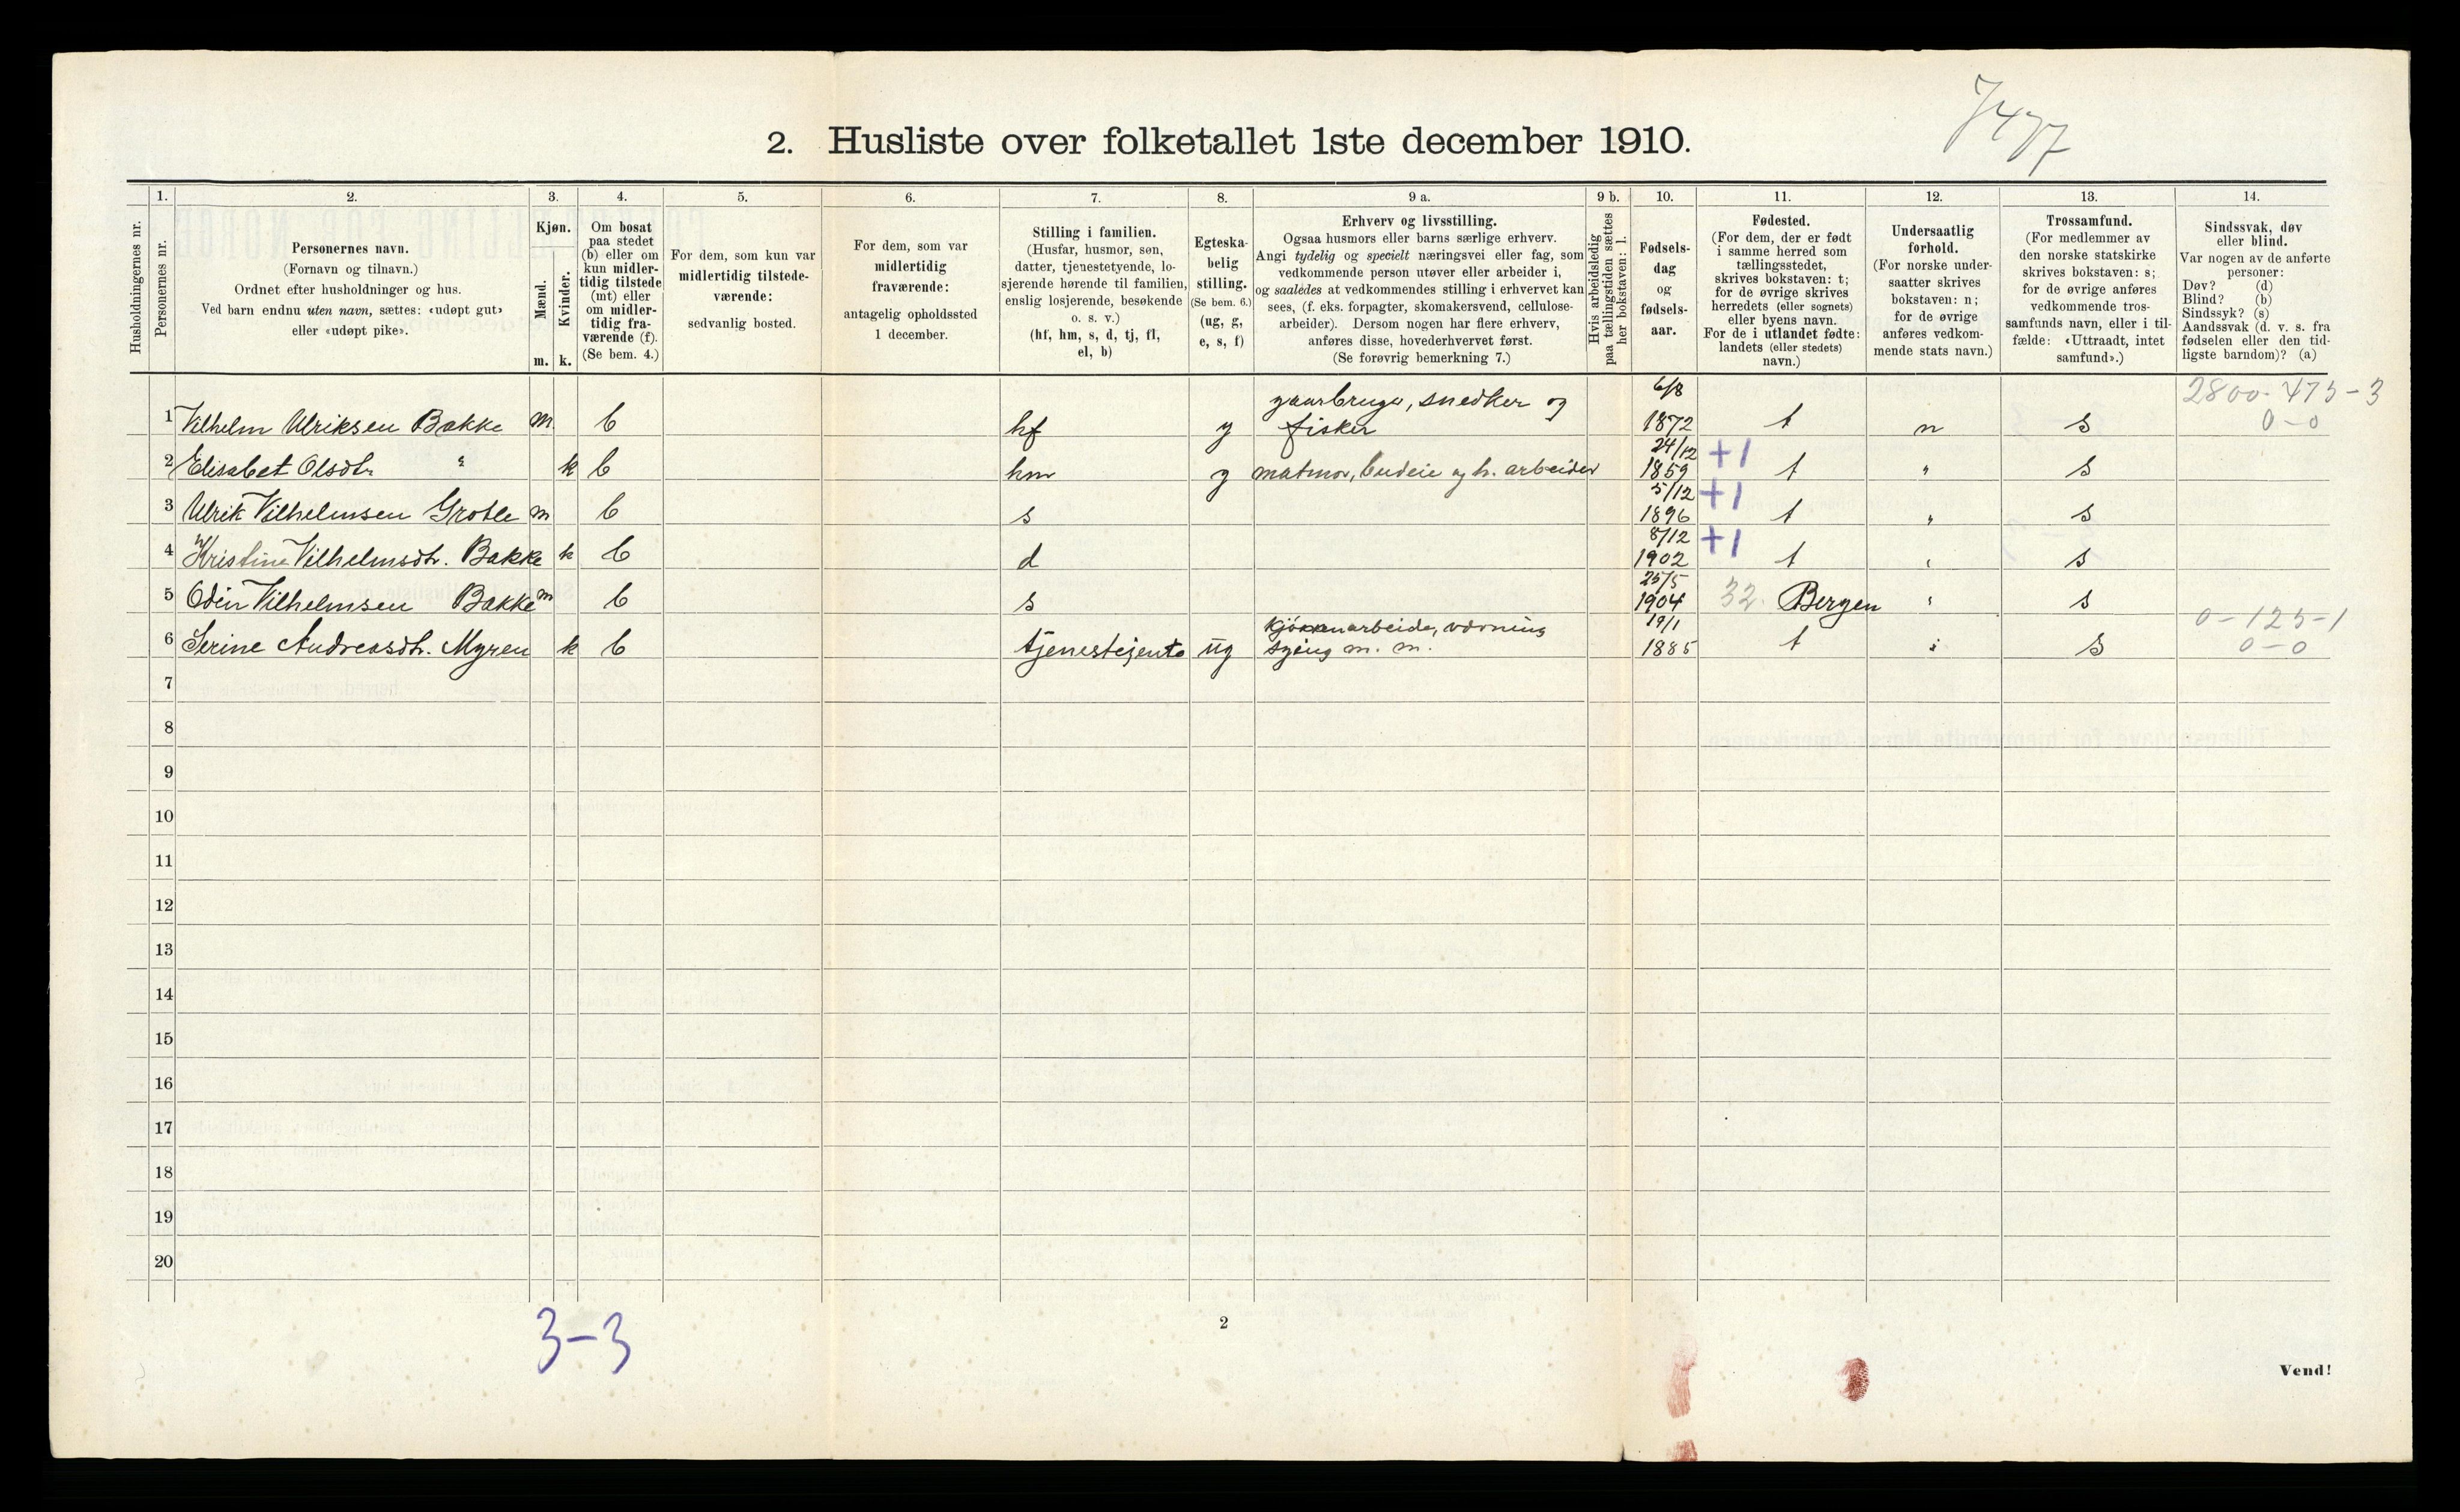 7477
2. Husliste over folketallet 1ste december 1910.
1. 2. 3. 4. 5. 6. 7. 8. 9 a. 9 b. 10. 11. 12. 13. 14.
Husholdningernes nr.
Personernes nr.
Personernes navn.
(Fornavn og tilnavn.)
Ordnet efter husholdninger og hus.
Ved barn endnu uten navn, sættes: «udøpt gut»
eller «udøpt pike».
Kjøn.
Mænd.
Kvinder.
m. k.
Om bosat
paa stedet
(b) eller om
kun midler-
tidig tilstede
(mt) eller
om midler-
tidig fra-
værende (f).
(Se bem. 4.)
For dem, som kun var
midlertidig tilstede-
værende:
sedvanlig bosted.
For dem, som var
midlertidig
fraværende:
antagelig opholdssted
1 december.
Stilling i familien.
(Husfar, husmor, søn,
datter, tjenestetyende, lo-
sjerende hørende til familien,
enslig losjerende, besøkende
o. s. v.)
(hf, hm, s, d, tj, fl,
el, b)
Egteska-
belig
stilling.
(Se bem. 6.)
(ug, g,
e, s, f)
Erhverv og livsstilling.
Ogsaa husmors eller barns særlige erhverv.
Angi tydelig og specielt næringsvei eller fag, som
vedkommende person utøver eller arbeider i,
og saaledes at vedkommendes stilling i erhvervet kan
sees, (f. eks. forpagter, skomakersvend, cellulose-
arbeider). Dersom nogen har flere erhverv,
anføres disse, hovederhvervet først.
(Se forøvrig bemerkning 7.)
Hvis arbeidsledig
paa tællingstiden sættes
her bokstaven: l.
Fødsels-
dag
og
fødsels-
aar.
Fødested.
(For dem, der er født
i samme herred som
tællingsstedet,
skrives bokstaven: t;
for de øvrige skrives
herredets (eller sognets)
eller byens navn.
For de i utlandet fødte:
landets (eller stedets)
navn.)
Undersaatlig
forhold.
(For norske under-
saatter skrives
bokstaven: n;
for de øvrige
anføres vedkom-
mende stats navn.)
Trossamfund.
(For medlemmer av
den norske statskirke
skrives bokstaven: s;
for de øvrige anføres
vedkommende tros-
samfunds navn, eller i til-
fælde: «Uttraadt, intet
samfund».)
Sindssvak, døv
eller blind.
Var nogen av de anførte
personer:
Døv? (d)
Blind? (b)
Sindssyk? (s)
Aandssvak (d. v. s. fra
fødselen eller den tid-
ligste barndom)? (a)
gaarbruger, snedker og 6/8 2800-475-3
1 Vilhelm Ulriksen Bakke m b hf g fisker 1872 t n s 0-0
24/12 +1
2 Elisabet Olsdtr " k b hm g matmor, budeie og h. arbeider 1859 t " s
5/12 +1
3 Ulrik Vilhelmsen Grotle m b s 1896 t " s
8/12 +1
4 Kristine Vilhelmsdtr. Bakke k b d 1902 t " s
25/5
5 Odin Vilhelmsen Bakke m b s 1904 32. Bergen " s
kjøkkenarbeide, vævning 19/1 0-125-1
6 Serine Andreasdtr. Myren k b tjenestejente ug sying m. m. 1885 t " s 0-0
7
8
9
10
11
12
13
14
15
16
17
18
19
20
3-3
2
Vend!